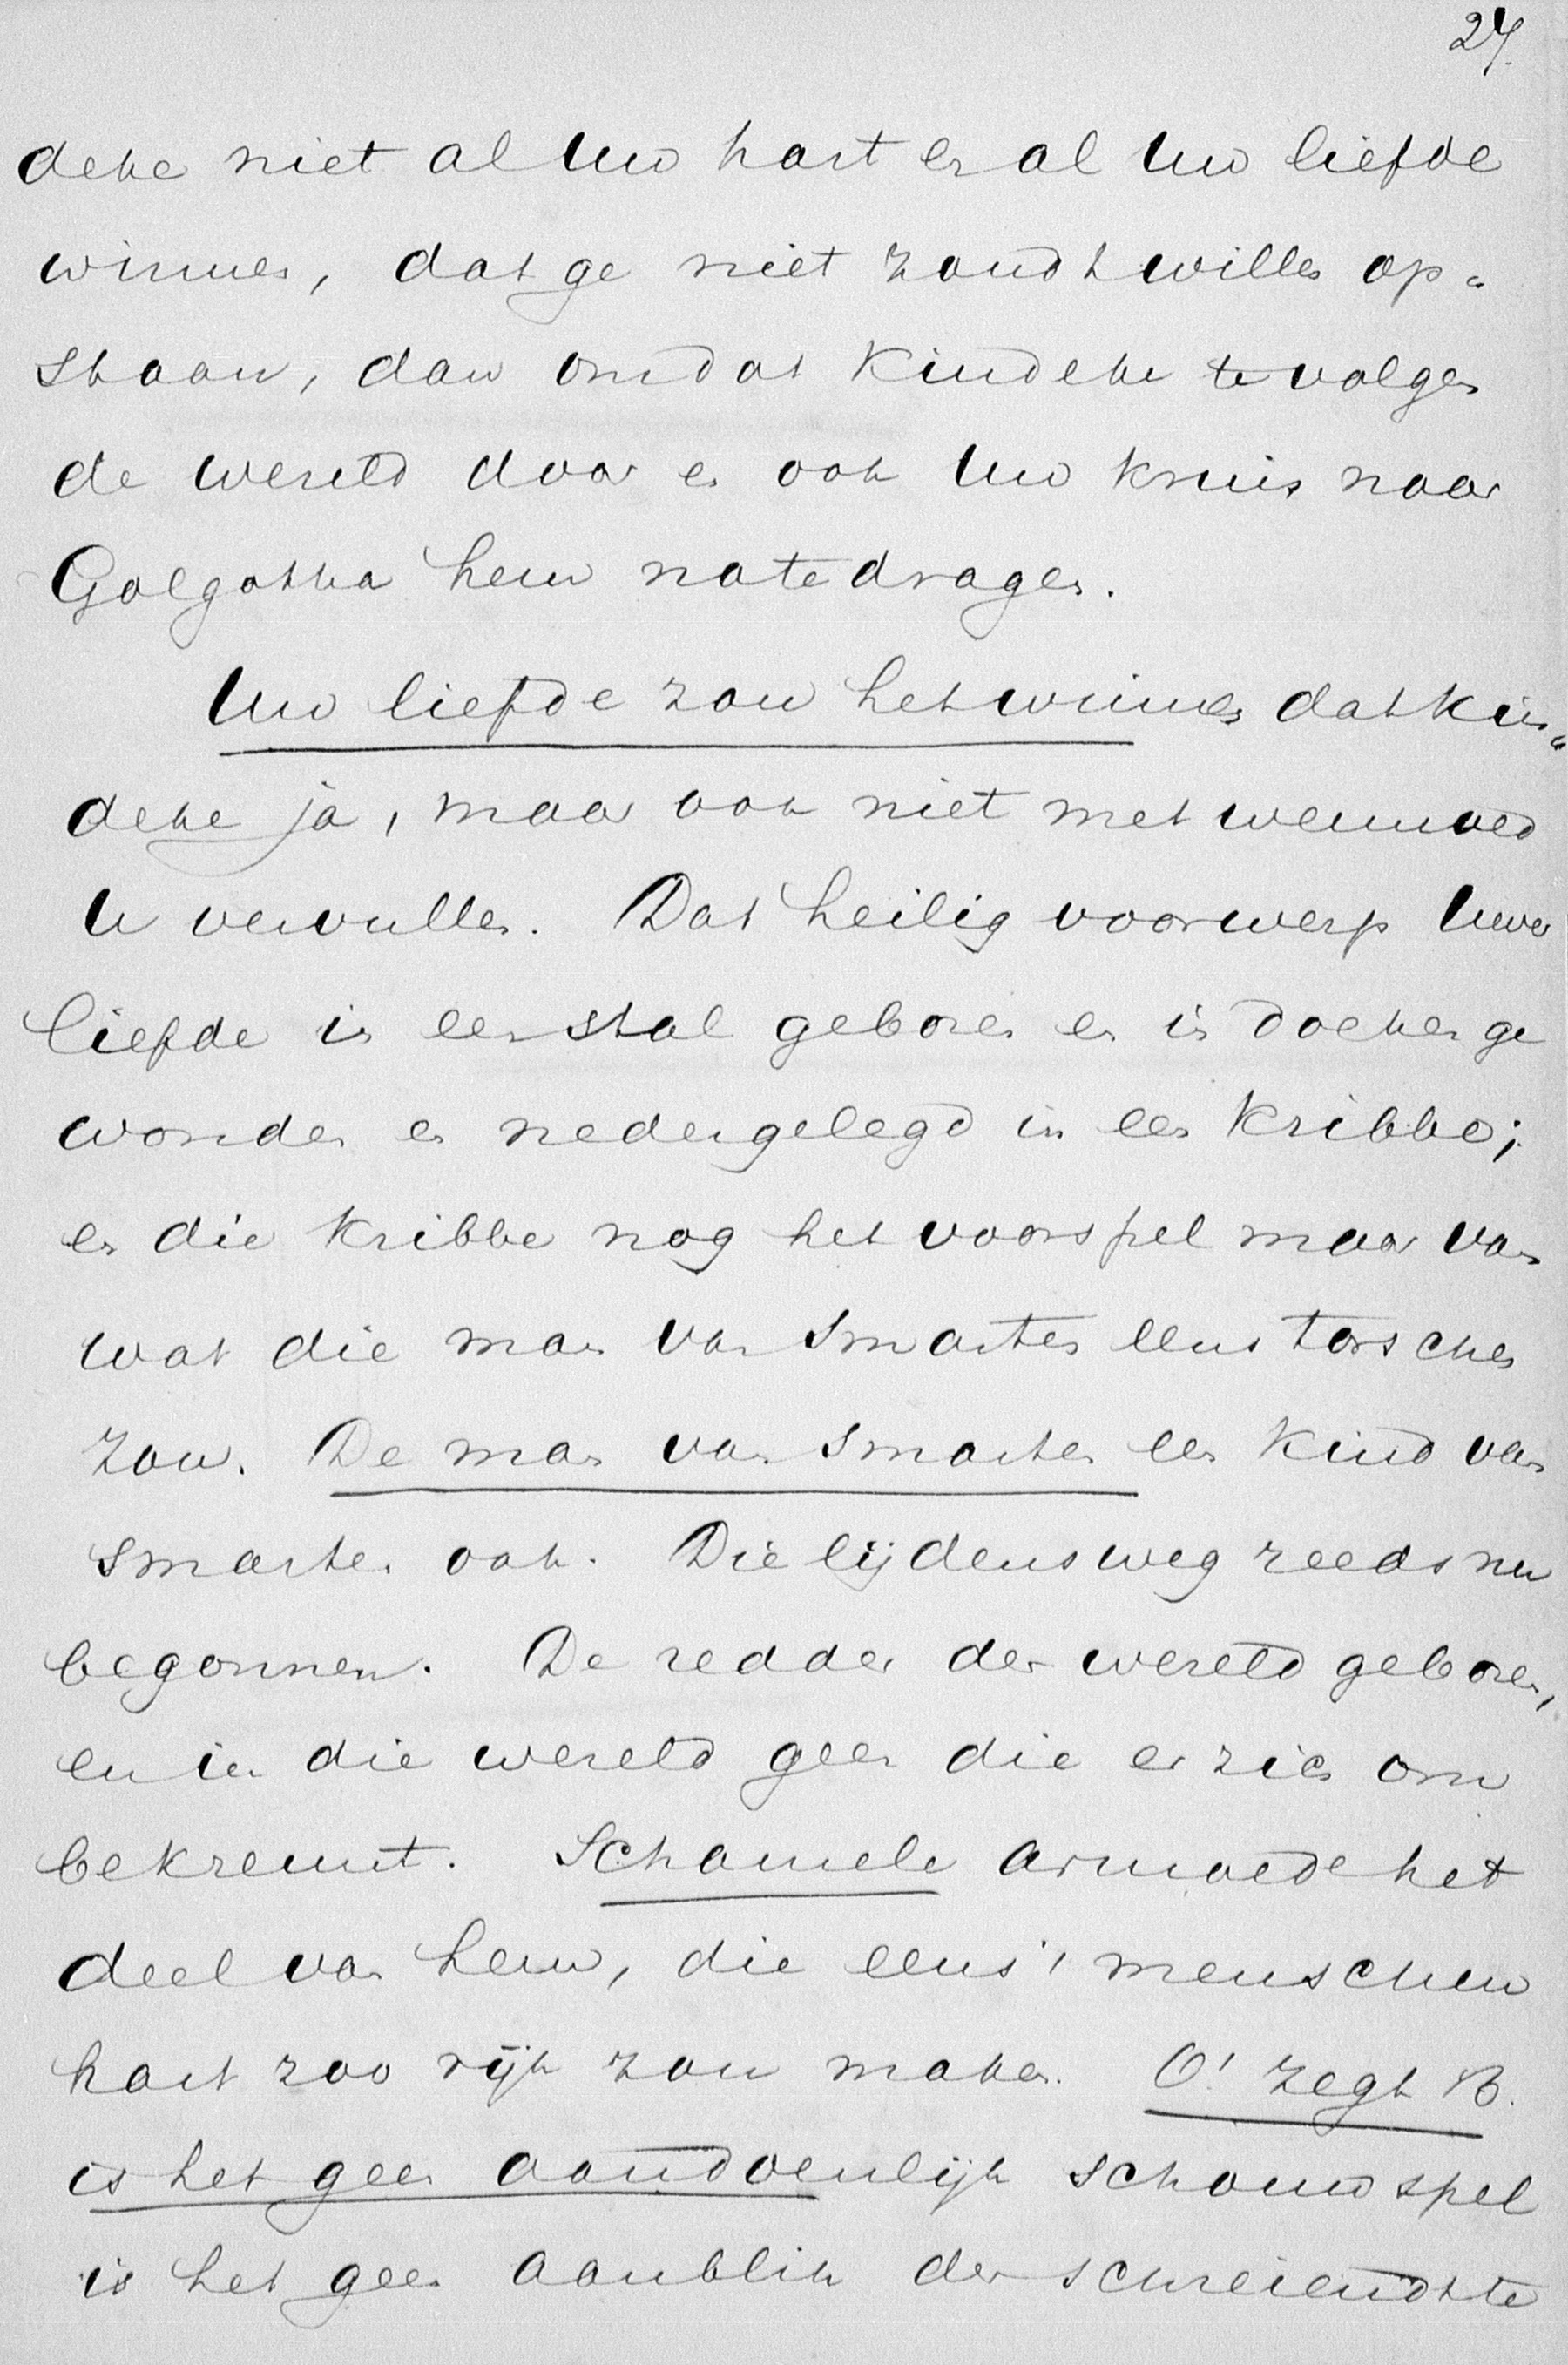 27.
deke niet al Uw hart en al Uw liefde
winnen, dat ge niet zoudt willen op-
staan, dan om dat kindeke te volgen
de wereld door en ook Uw kruis naar
Golgotha hem na te dragen.
Uw liefde zou het winnen dat kin-
deke ja, maar ook niet met weemoed
U vervullen. Dat heilig voorwerp Uwer
liefde in een stal geboren en in doeken ge
wonden en nedergelegd in een kribbe;
en die kribbe nog het voorspel maar van
wat die man van smarten eens torschen
zou. De man van smarten een kind van
smarten ook. Die lijdensweg reeds nu
begonnen. De redder der wereld geboren,
en in die wereld geen die er zich om
bekreunt. Schamele armoede het
deel van hem, die eens 's menschen
hart zoo rijk zou maken. O! zegt B.
is het geen aandoenlijk schouwspel
is het geen aanblik der schreiendste